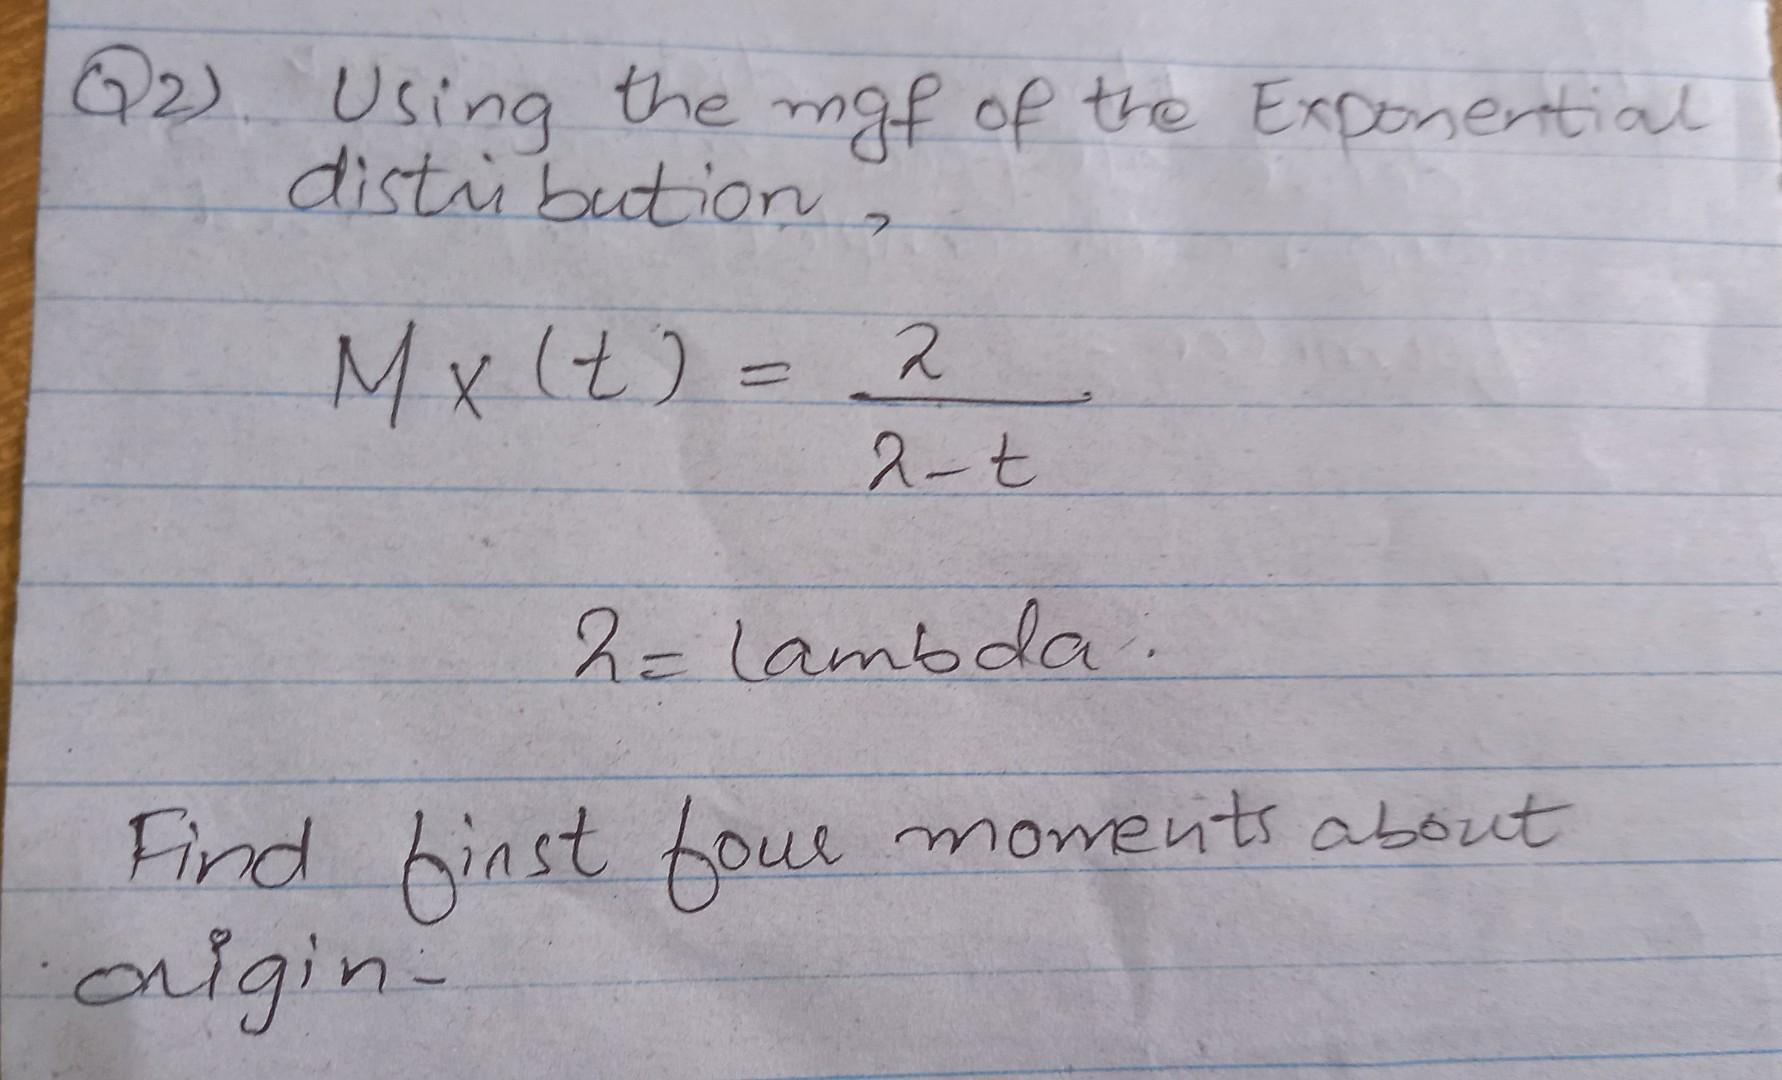 Q2) Using the mgf of the Exponential
distribution,
Mx(t) = λ
λ-t
λ = lambda.
Find first four moments about
origin-